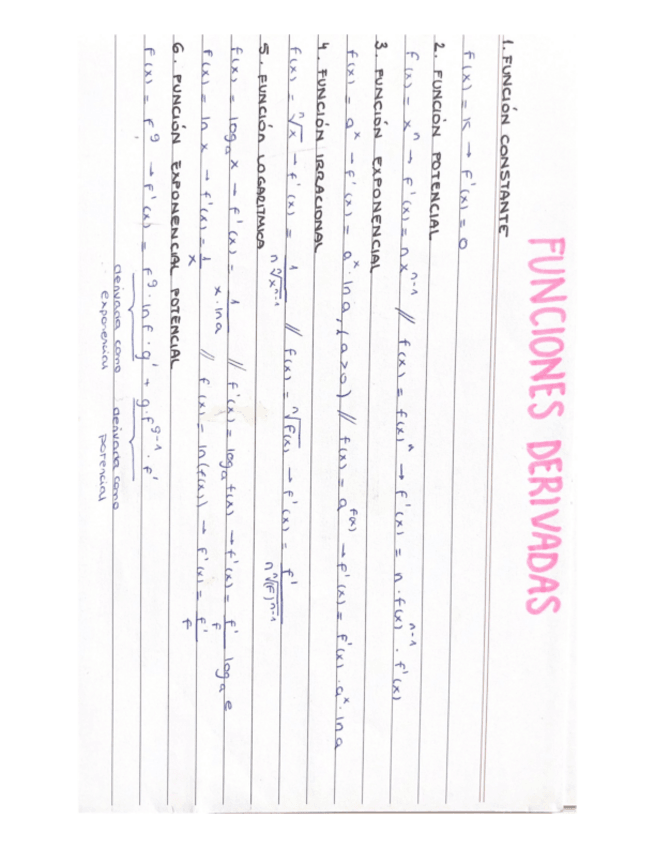 FUNCIONES DERIVADAS
1. FUNCIÓN CONSTANTE
f(x) = K → f'(x) = 0
2. FUNCIÓN POTENCIAL
f(x) = xⁿ → f'(x) = n xⁿ⁻¹ // f(x) = f(x)ⁿ → f'(x) = n · f(x)ⁿ⁻¹ · f'(x)
3. FUNCIÓN EXPONENCIAL
f(x) = aˣ → f'(x) = aˣ · ln a, (a>0) // f(x) = a^f(x) → f'(x) = f'(x) · aˣ · ln a
4. FUNCIÓN IRRACIONAL
f(x) = ⁿ√x → f'(x) = 1 / n ⁿ√xⁿ⁻¹ // f(x) = ⁿ√f(x) → f'(x) = f' / n ⁿ√(f)ⁿ⁻¹
5. FUNCIÓN LOGARITMICA
f(x) = logₐ x → f'(x) = 1 / x · ln a // f'(x) = logₐ f(x) → f'(x) = f' / f logₐ e
f(x) = ln x → f'(x) = 1 / x // f(x) = ln(f(x)) → f'(x) = f' / f
6. FUNCIÓN EXPONENCIAL POTENCIAL
f(x) = f^g → f'(x) = f^g · ln f · g' + g · f^g-1 · f'
derivada como derivada como
exponencial potencial